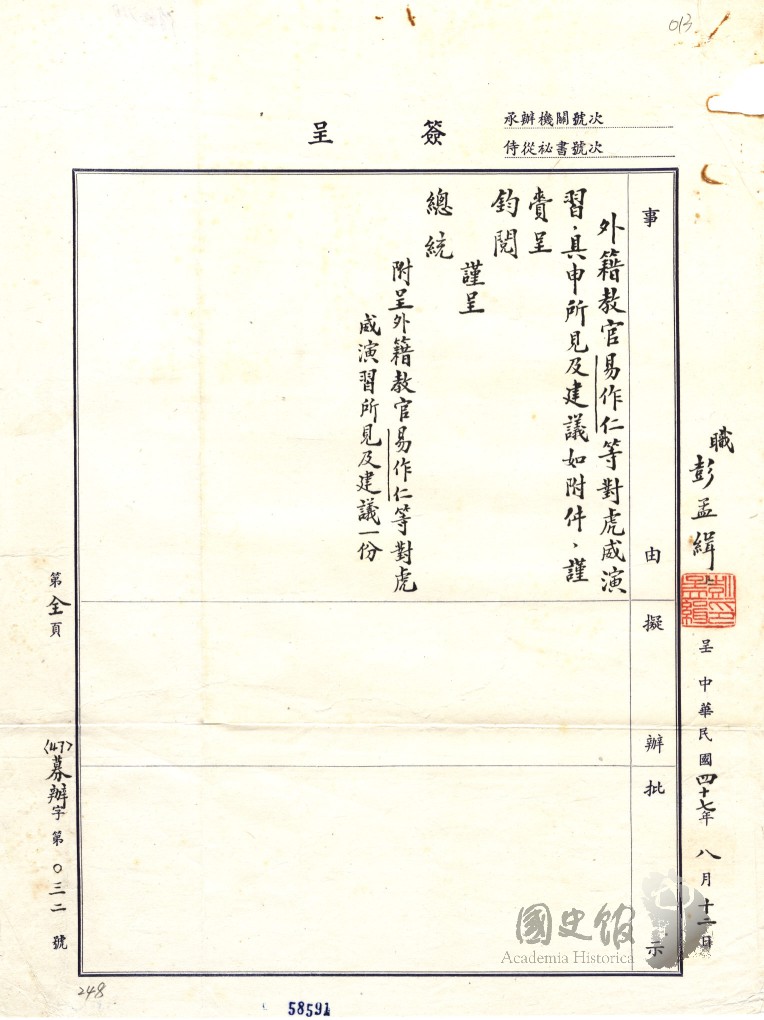 013
簽呈
承辦機關號次
侍從祕書號次
職彭孟緝
呈 中華民國四十七年 八月十二日
事由
擬辦
批示
外籍教官易作仁等對虎威演
習、具申所見及建議如附件、謹
賫呈
鈞閱
謹呈
總統
附呈外籍教官易作仁等對虎
威演習所見及建議一份
第全頁
(47)募辦字第〇三二號
國史館
Academia Historica
248
58591